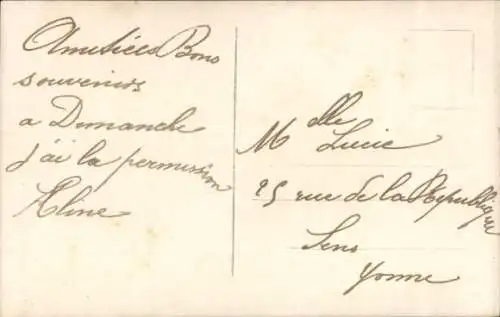 Amitiées Bons
souvenirs
a Dimanche
j'ai la permission
Aline
Mlle Lucie
25 rue de la République
Sens
Yonne